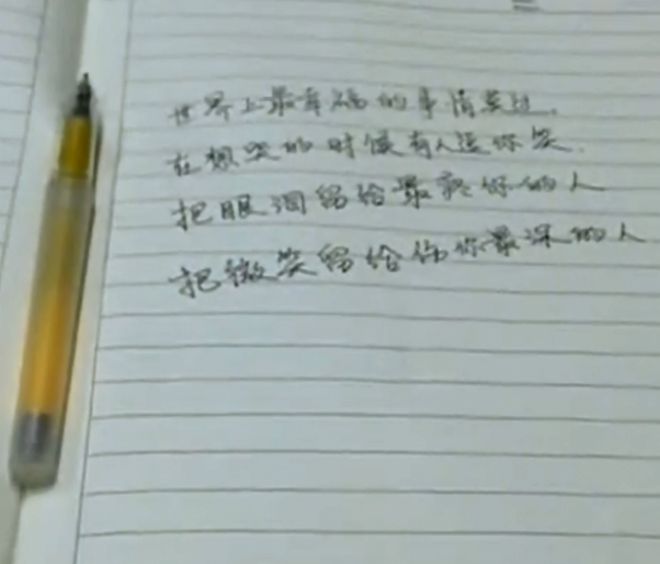 世界上最幸福的事情莫过,
在想哭的时候有人逗你笑.
把眼泪留给最疼你的人
把微笑留给伤你最深的人